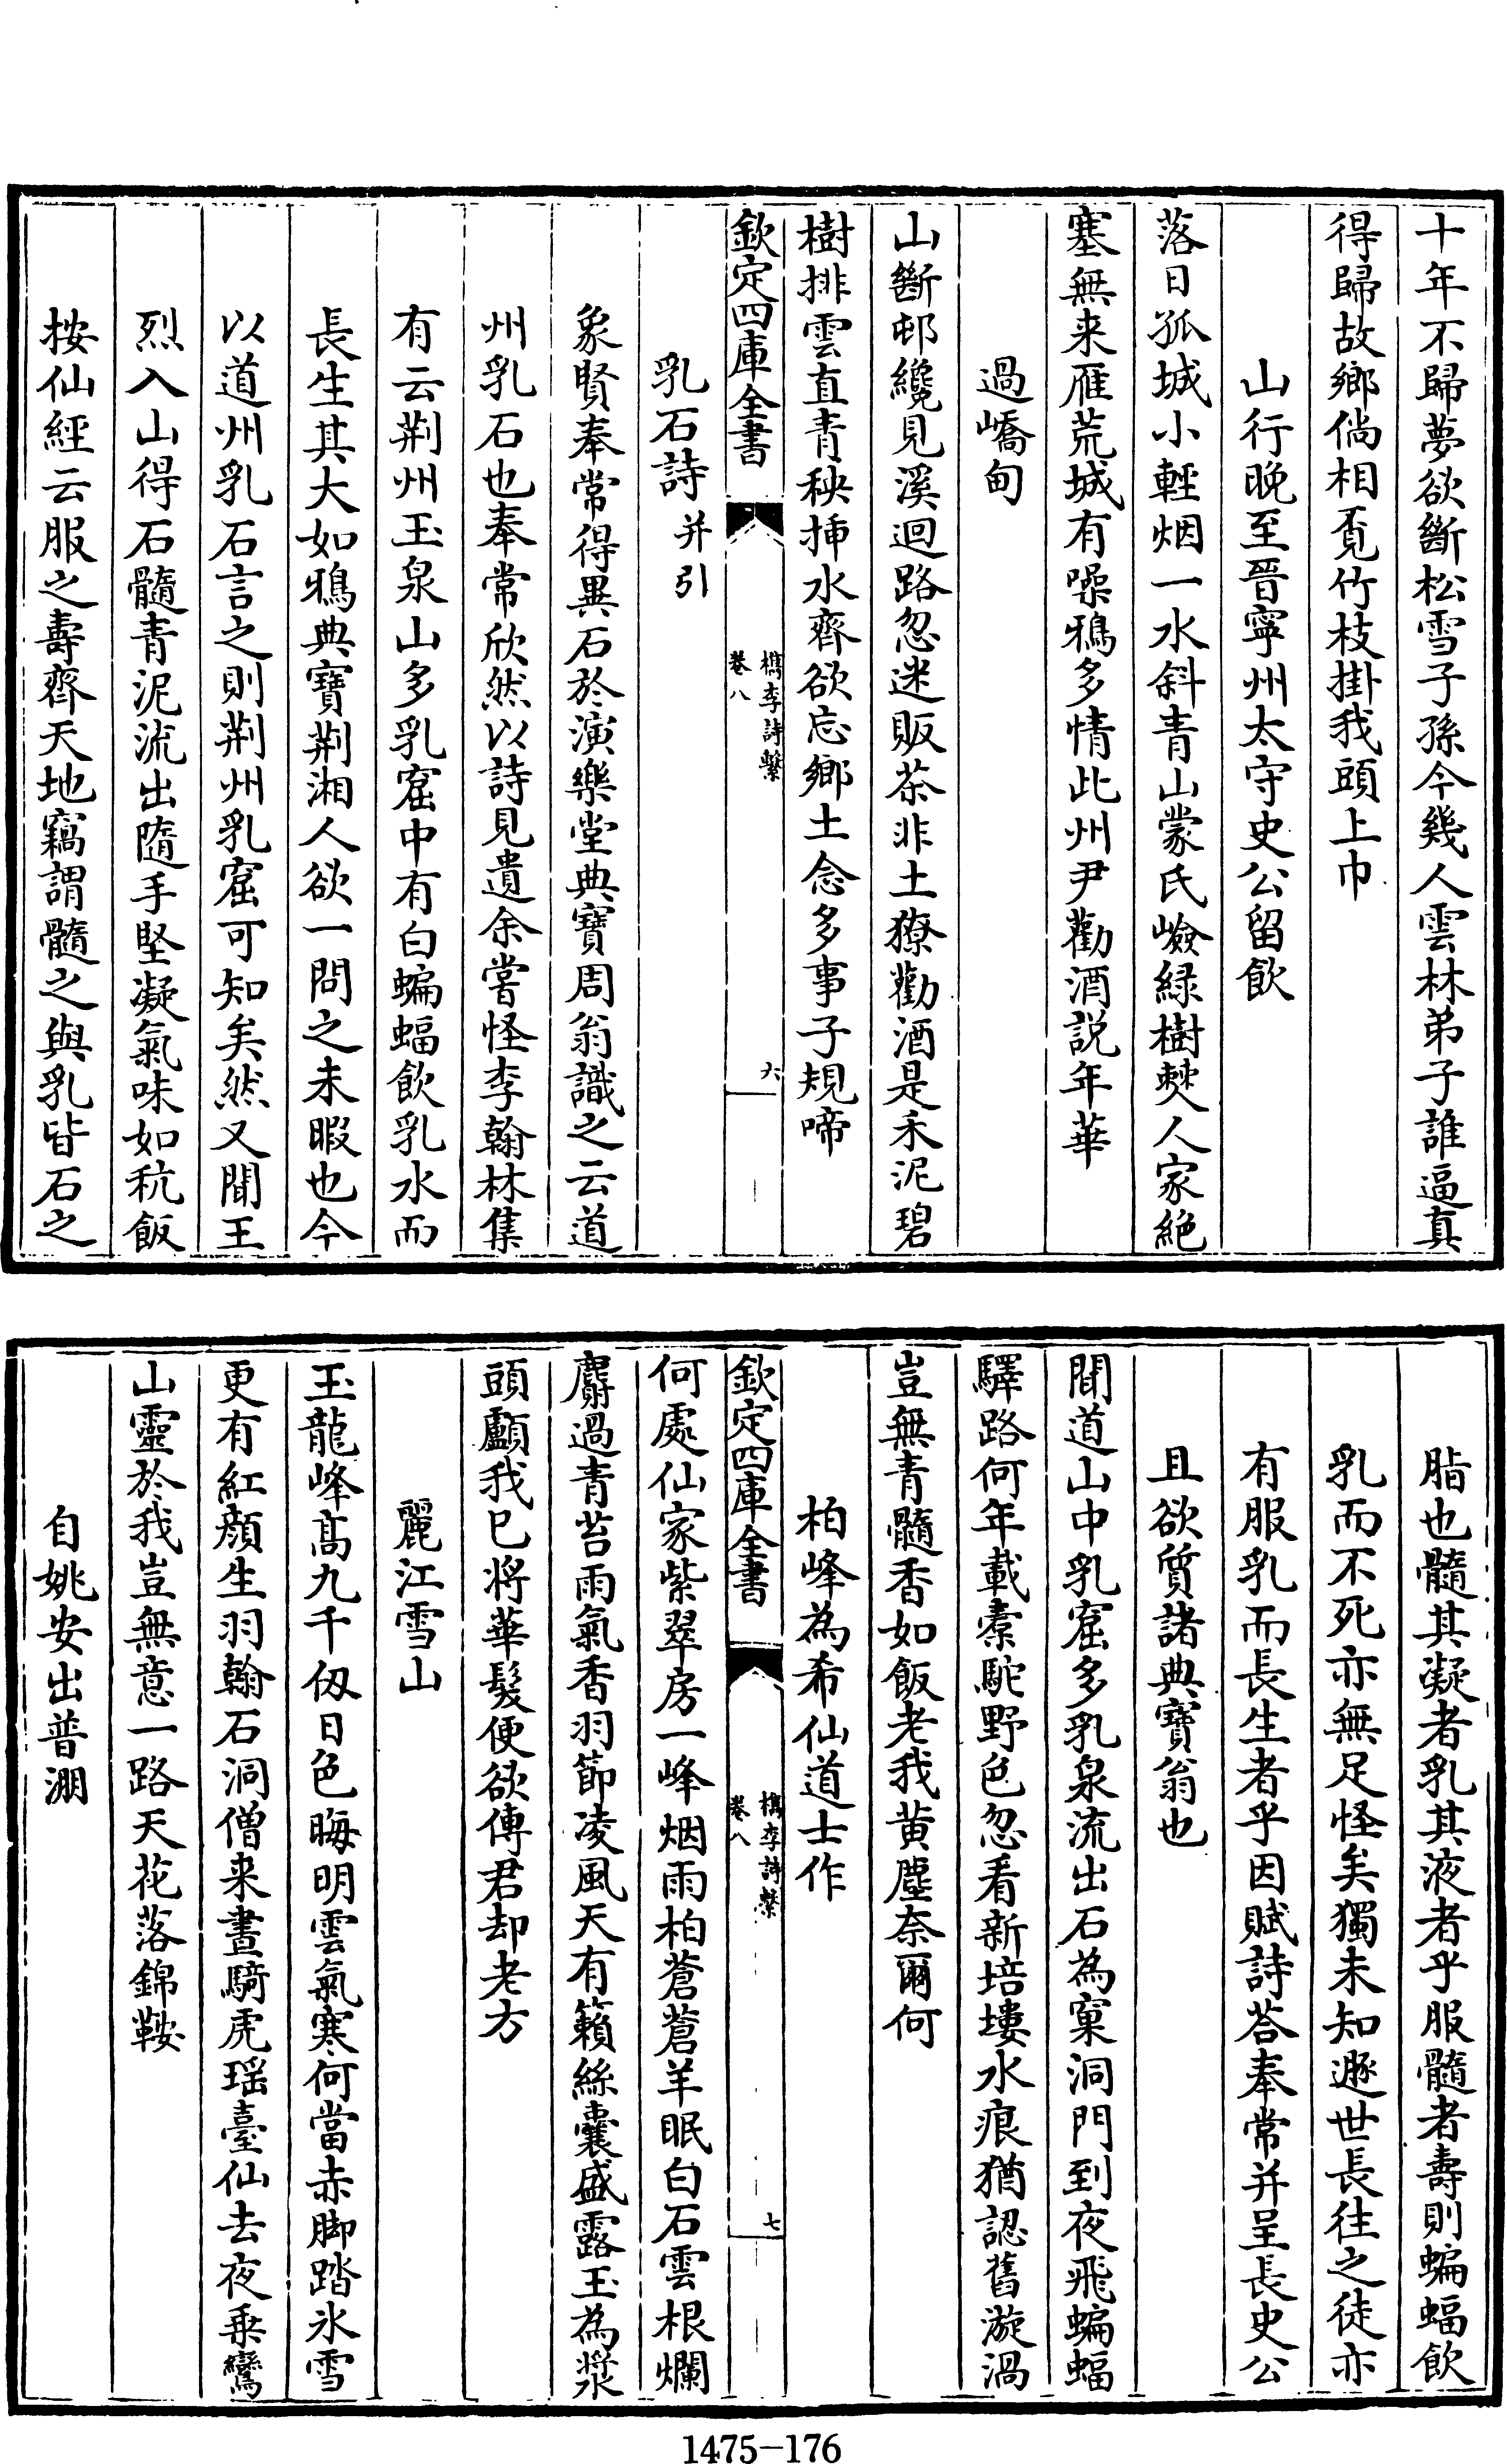 十年不歸夢欲斷松雪子孫今幾人雲林弟子誰逼真
得歸故鄉倘相覔竹枝掛我頭上巾
山行晚至晉寧州太守史公留飲
落日孤城小輕烟一水斜青山蒙氏嶮緑樹僰人家絶
塞無来雁荒城有噪鴉多情此州尹勸酒説年華
過嶠甸
山斷邨纔見溪迴路忽迷販茶非土獠勸酒是禾泥碧
樹排雲直青秧揷水齊欲忘鄉土念多事子規啼
欽定四庫全書
檇李詩繫
卷八
六
乳石詩并引
象賢奉常得異石於演樂堂典寶周翁識之云道
州乳石也奉常欣然以詩見遺余嘗怪李翰林集
有云荆州玉泉山多乳窟中有白蝙蝠飲乳水而
長生其大如鴉典寶荆湘人欲一問之未暇也今
以道州乳石言之則荆州乳窟可知矣然又聞王
烈入山得石髓青泥流出隨手堅凝氣味如秔飯
按仙經云服之壽齊天地竊謂髓之與乳皆石之
脂也髓其凝者乳其液者乎服髓者壽則蝙蝠飲
乳而不死亦無足怪矣獨未知遯世長往之徒亦
有服乳而長生者乎因賦詩荅奉常并呈長史公
且欲質諸典寶翁也
聞道山中乳窟多乳泉流出石為窠洞門到夜飛蝙蝠
驛路何年載橐駝野色忽看新培塿水痕猶認舊漩渦
豈無青髓香如飯老我黄塵奈爾何
柏峰為希仙道士作
欽定四庫全書
檇李詩繫
卷八
七
何處仙家紫翠房一峰烟雨柏蒼蒼羊眠白石雲根爛
麝過青苔雨氣香羽節凌風天有籟絲囊盛露玉為漿
頭顱我巳將華髮便欲傳君却老方
麗江雪山
玉龍峰髙九千仭日色晦明雲氣寒何當赤脚踏氷雪
更有紅顔生羽翰石洞僧来晝騎虎瑶臺仙去夜乗鸞
山靈於我豈無意一路天花落錦鞍
自姚安出普淜
1475-176